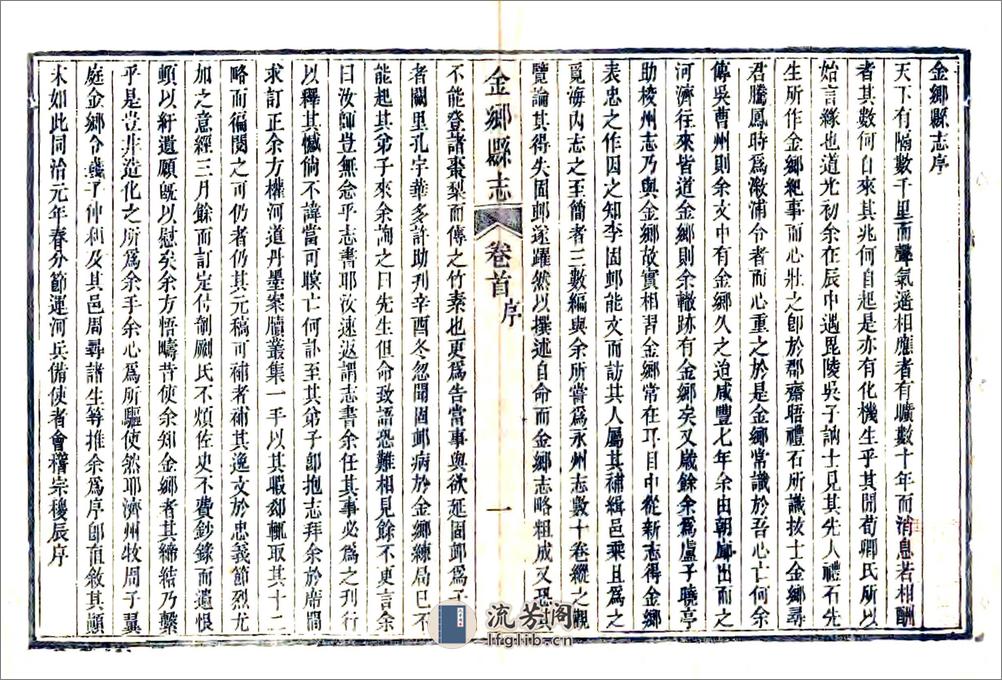 金鄉縣志序
天下有隔數千里而聲氣遥相應者有曠數十年而消息若相酬
者其數何自來其兆何自起是亦有化機生乎其閒荀卿氏所以
始言緣也道光初余在辰中遇毘陵吳子訥士見其先人禮石先
生所作金鄉紀事而心壯之卽於郡齋晤禮石所識拔士金鄉尋
君騰鳳時爲漵浦令者而心重之於是金鄉常識於吾心亡何余
傳吳曹州則余文中有金鄉久之迨咸豐七年余由朝廊出而之
河濟行來皆道金鄉則余轍跡有金鄉矣又歲餘余爲盧子曉亭
助校州志乃與金鄉故實相習金鄉常在耳目中從新志得金鄉
表忠之作因之知李固邨能文而訪其人屬其補緝邑乘且爲之
覓海内志之至簡者三數編與余所嘗爲永州志數十卷縱之觀
覽論其得失固邨遂躍然以撰述自命而金鄉志略粗成又恐其
金鄉縣志
卷首
序
一
不能登諸棗梨而傳之竹素也更爲告當事與欲延固邨爲子
者闕里孔宇華多許助刋辛酉冬忽聞固邨病於金鄉練局已不
能起其弟子來余詢之曰先生但命致語恐難相見餘不更言余
曰汝師豈無念乎志書耶汝速返謂志書余任其事必爲之刋行
以釋其憾倘不諱當可瞑亡何訃至其弟子卽抱志拜余於席間
求訂正余方權河道丹墨案牘叢集一手以其暇郄輒取其十二
略而徧閱之可仍者仍其元稿可補者補其逸文於忠義節烈尤
加之意經三月餘而訂定付剞劂氏不煩佐史不費鈔錄而遺恨
頓以紓遺願旣以慰矣余方悟疇昔使余知金鄉者其締結乃繫
乎是豈井造化之所爲余手余心爲所驅使然耶濟州牧周子翼
庭金鄉令戴子仲和及其邑周尋諸生等推余爲序卽直敘其顚
末如此同治元年春分節運河兵備使者會稽宗稷辰序
流芳阁
lfglib.com